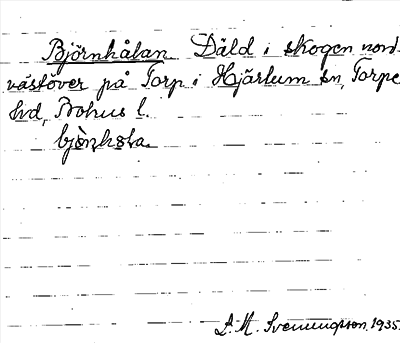 Björnhålan. Däld i skogen nord-
västöver på Torp i Hjärtum sn, Torpe
hd, Bohus l.
S.M. Svenungsson. 1935.